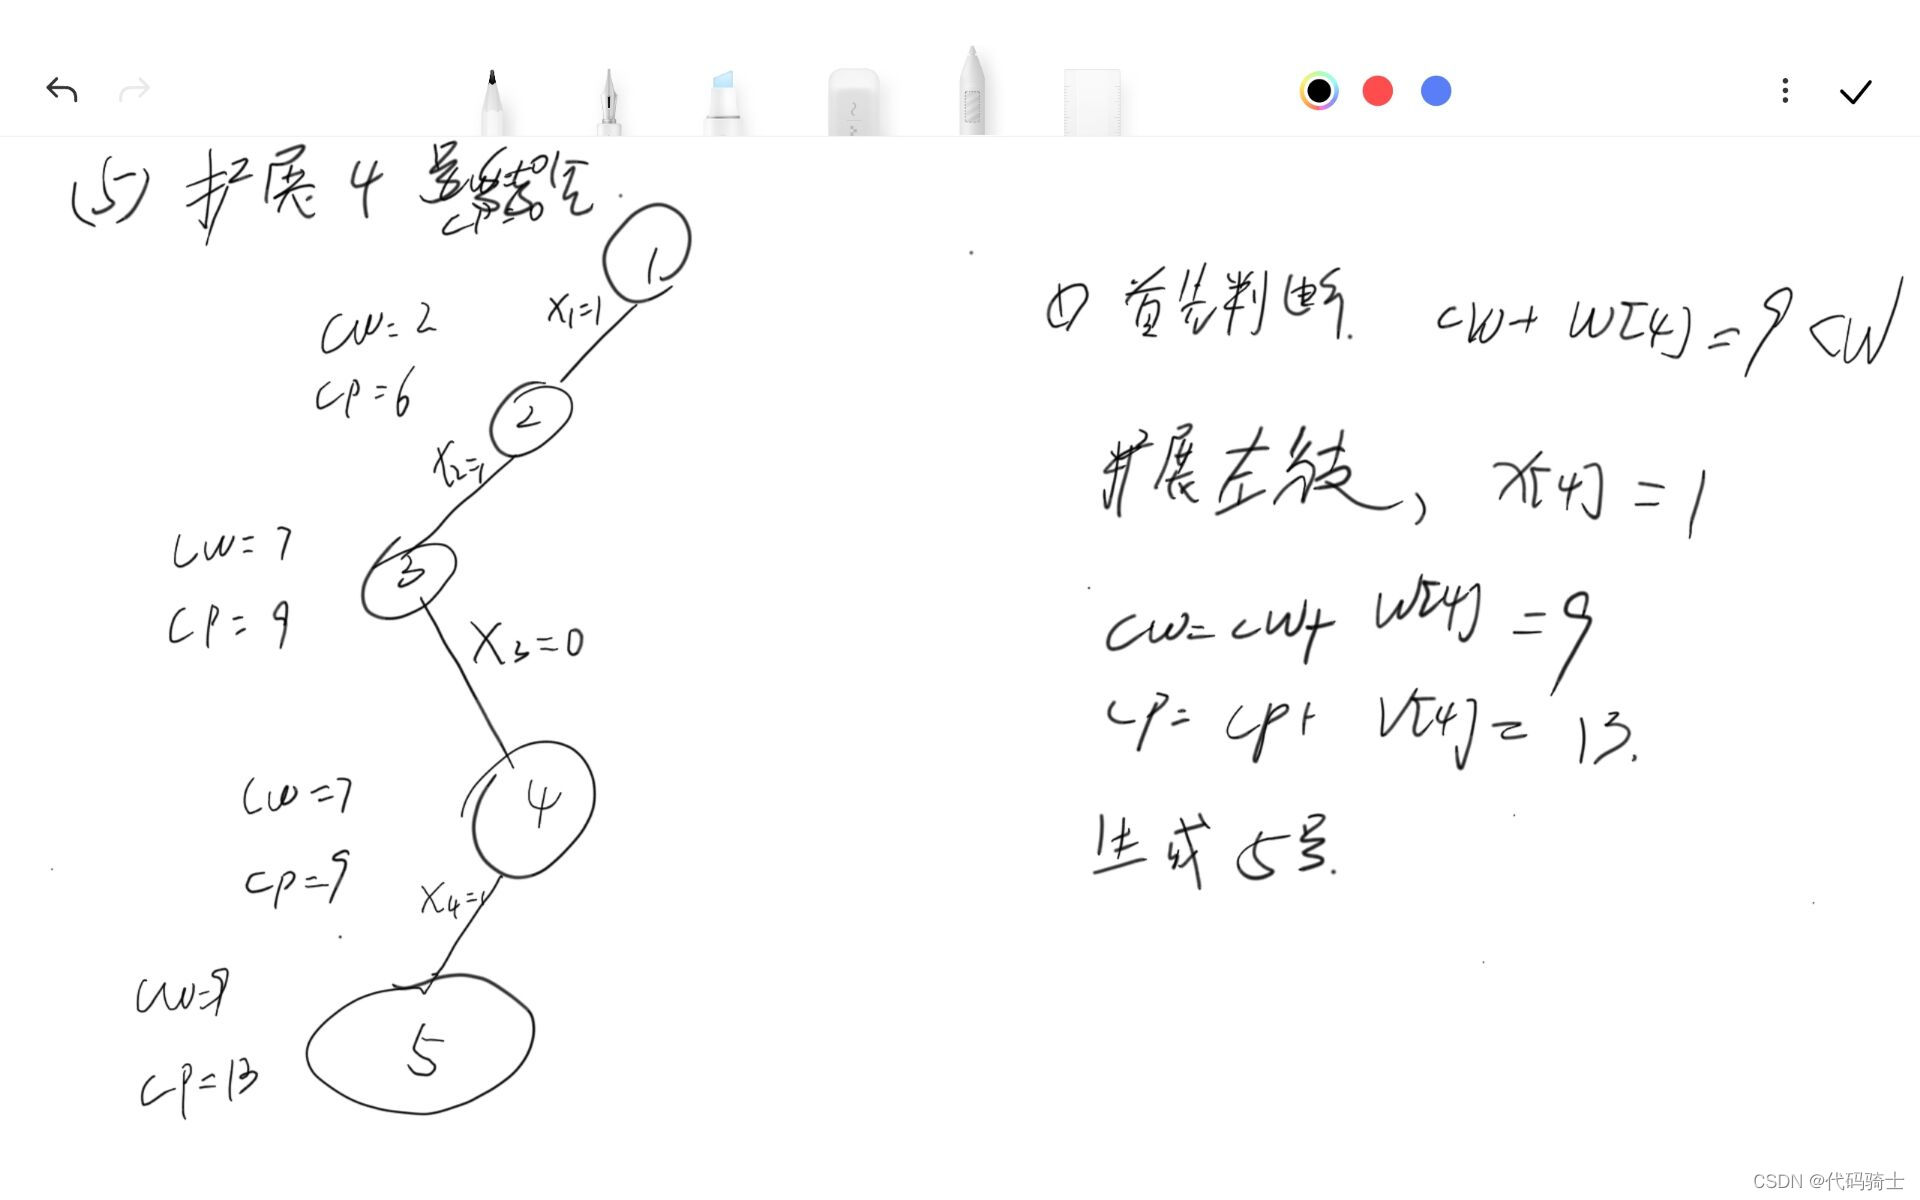 (5) 扩展 4 号结点.
cw=0
cp=0
1
x₁=1
cw=2
cp=6
2
x₂=1
cw=7
cp=9
3
x₃=0
cw=7
cp=9
4
x₄=1
cw=9
cp=13
5
① 首先判断. cw+ w[4]=9<W
扩展左枝, x[4]=1
cw=cw+ w[4]=9
cp= cp+ v[4]= 13.
生成 5号.
CSDN @代码骑士